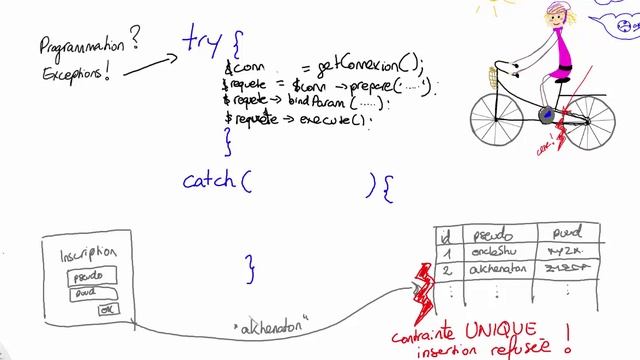 Programmation ?
Exceptions !
try {
$conn = getConnexion();
$requete = $conn → prepare('.....');
$requete → bindParam (.....);
$requete → execute();
}
catch( ) {
}
crac!
Inscription
pseudo
pwd
OK
"akhenaton"
id pseudo pwd
1
2 akhenaton
contrainte UNIQUE !
insertion refusée